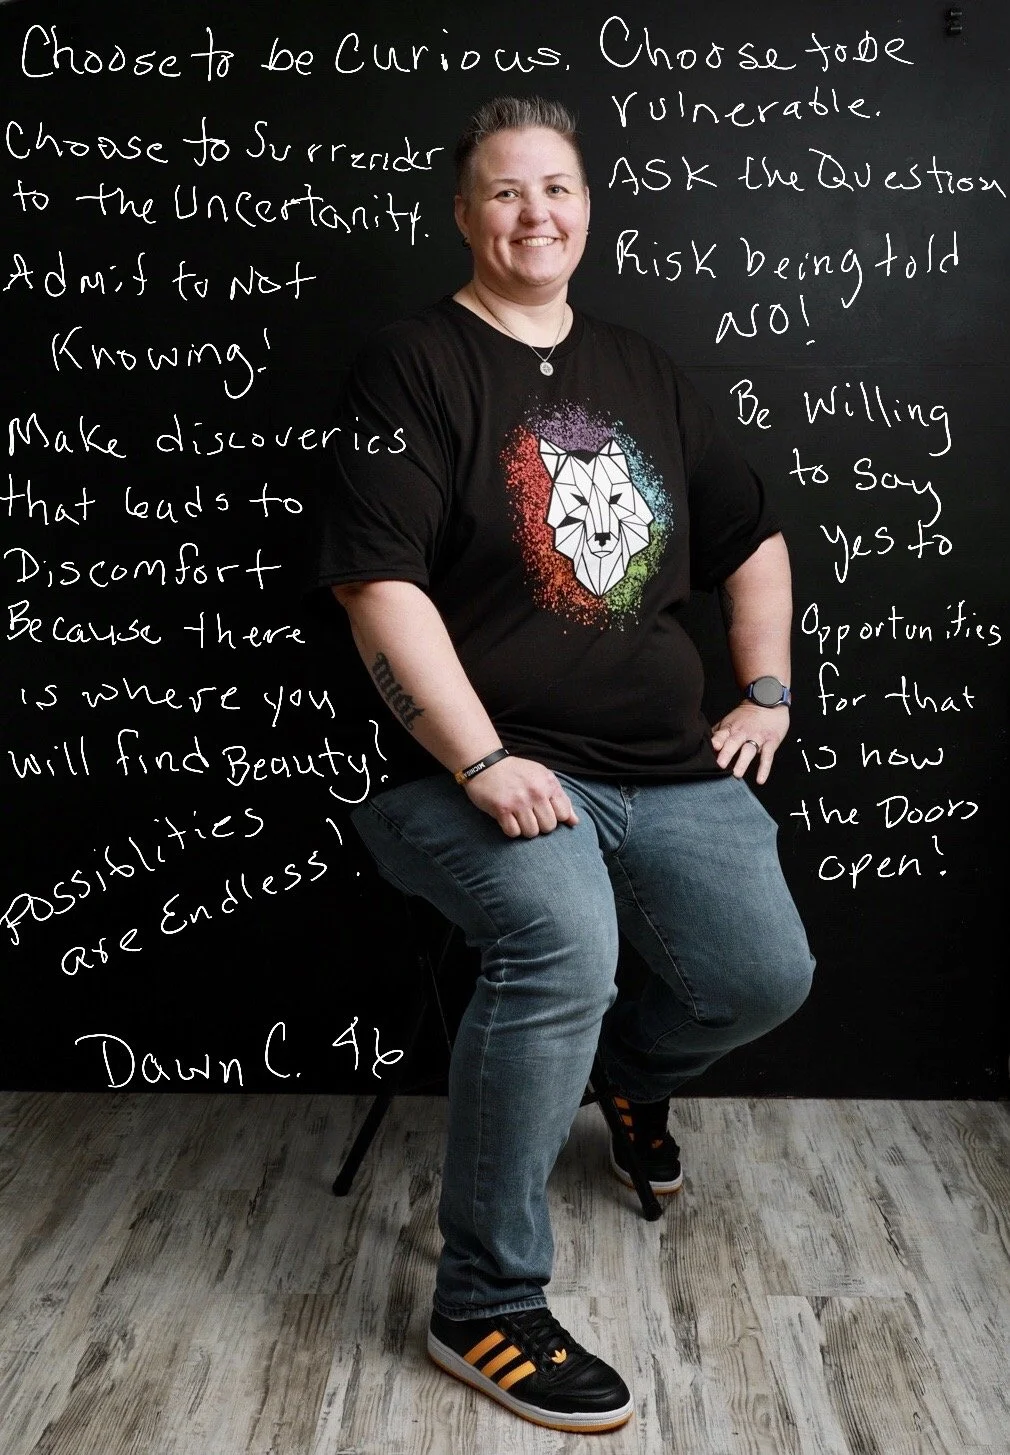 Choose to be Curious. Choose to be
vulnerable.
Choose to Surrender
to the Uncertanity.
Admit to Not
Knowing!
Make discoveries
that leads to
Discomfort
Because there
is where you
will find Beauty!
Possiblities
are Endless!
ASK the Question
Risk being told
NO!
Be Willing
to say
yes to
Opportunities
for that
is how
the Doors
open!
Dawn C. 46